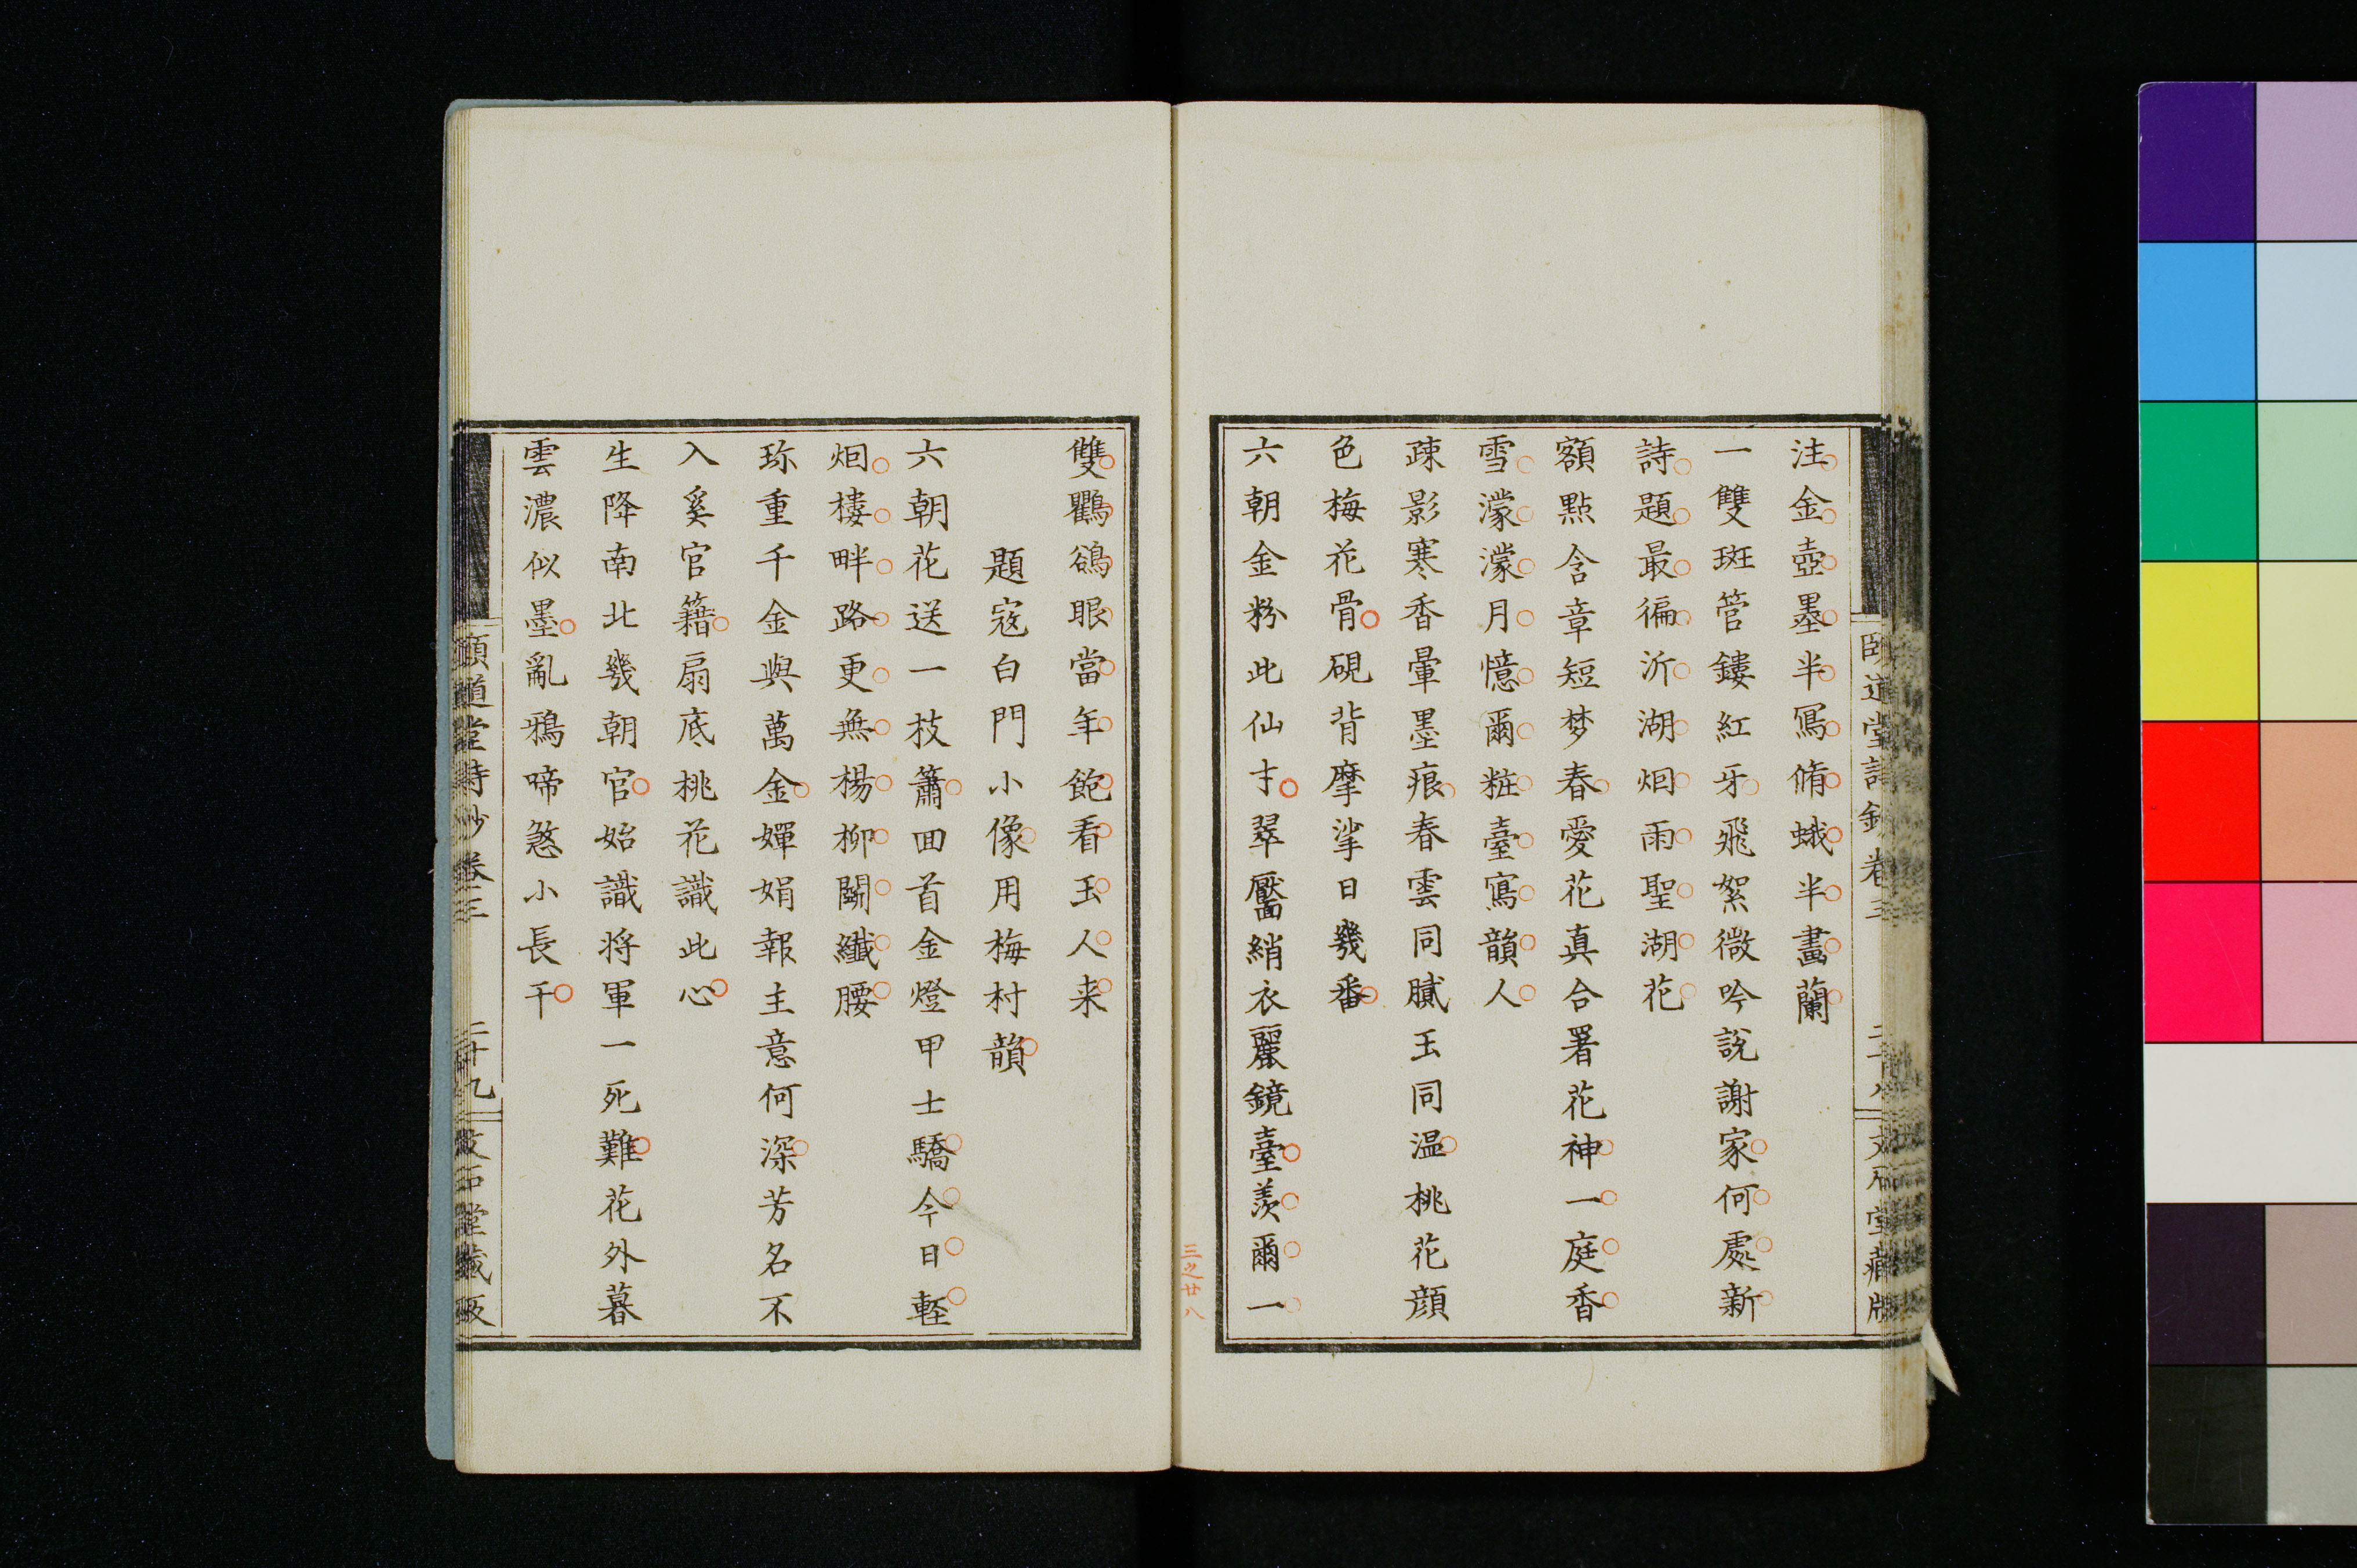 注金壺墨半寫脩蛾半畫蘭
一雙斑管鏤紅牙飛絮微吟說謝家何處新
詩題最徧沂湖烟雨聖湖花
額點含章短梦春愛花真合署花神一庭香
雪濛濛月憶爾粧臺寫韻人
疎影寒香暈墨痕春雲同膩玉同温桃花顏
色梅花骨硯背摩挲日幾番
六朝金粉此仙才翠靨綃衣麗鏡臺羨爾一
雙鸜鵒眼當年飽看玉人来
題寇白門小像用梅村韻
六朝花送一枝簫回首金燈甲士驕今日輕
烟樓畔路更無楊柳鬭纖腰
珎重千金與萬金嬋娟報主意何深芳名不
入奚官籍扇底桃花識此心
生降南北幾朝官始識将軍一死難花外暮
雲濃似墨亂鴉啼煞小長干
頤道堂詩鈔 卷三
二十八
文石堂藏版
頤道堂詩鈔 卷三
二十九
文石堂藏版
三之廿八